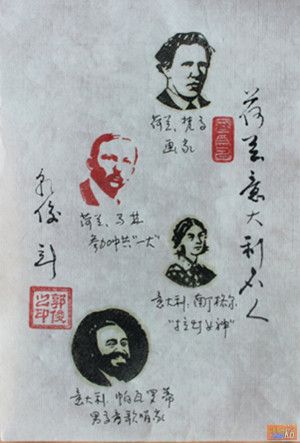 荷兰意大利名人
荷兰.梵高
画家
荷兰.马林
参加中共“一大”
意大利.南丁格尔
“提灯女神”
意大利.帕瓦罗蒂
男高音歌唱家
郭俊
之印